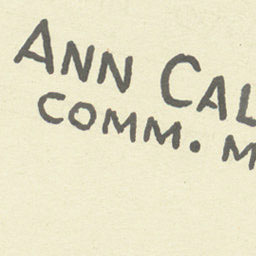 ANN CAL
COMM. M